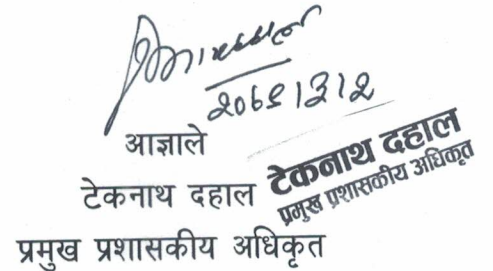 २०७९।३।२
आज्ञाले
टेकनाथ दहाल
प्रमुख प्रशासकीय अधिकृत
टेकनाथ दहाल
प्रमुख प्रशासकीय अधिकृत